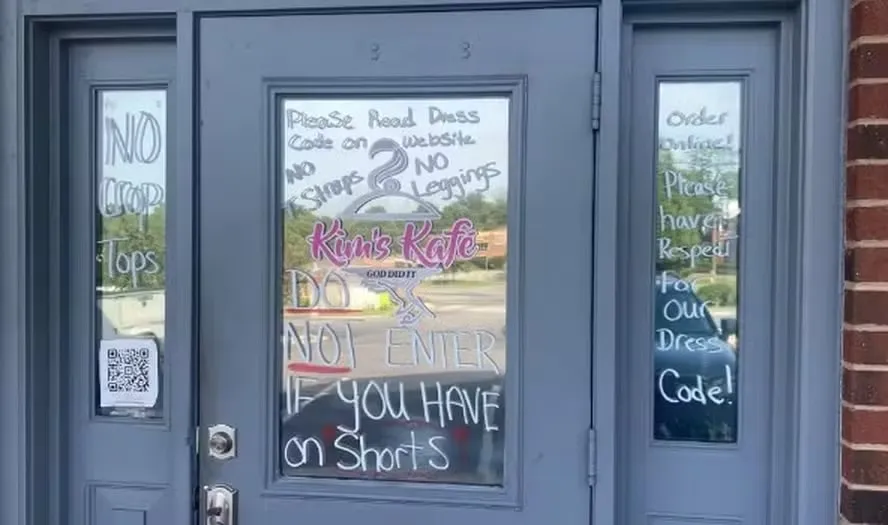 NO
CROP
Tops
Please Read Dress
Code on Website
NO NO
TStraps Leggings
Kim's Kafé
GOD DID IT
DO
NOT ENTER
IF YOU HAVE
on Shorts
Order
Online!
Please
have
Respect
For
Our
Dress
Code!